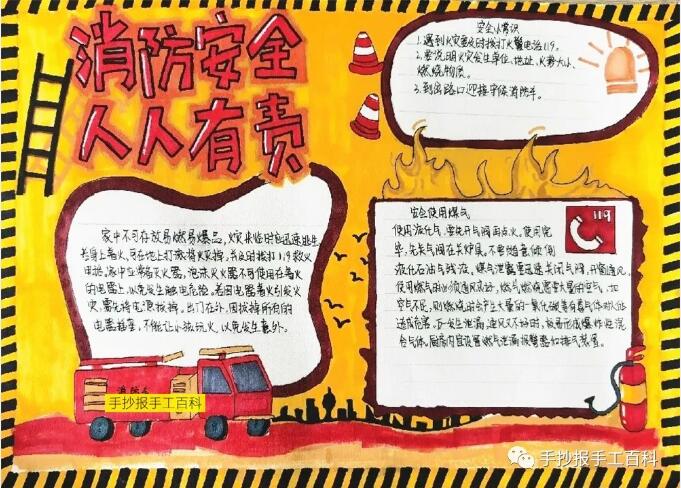 消防安全
人人有责
安全小常识
1.遇到火灾要及时拨打火警电话119。
2.要说明火灾发生单位、地址、火势大小、
燃烧物质。
3.到出路口迎接等候消防车。
家中不可存放易燃易爆品，火灾来临时要迅速逃生
若身上着火，可在地上打滚将火灭掉，并及时拨打119救火
电话，家中应常备灭火器，泡沫灭火器不可使用在着火
的电器上，以免发生触电危险。若因电器着火引发火
灾，要先将电源拔掉。出门在外，因拔掉所有的
电器插座，不能让小孩玩火，以免发生意外。
安全使用煤气
119
使用液化气，要先开气阀再点火。使用完
毕，先关气阀在关炉具。不要随意倾倒
液化石油气残液，煤气泄露要迅速关闭气阀，开窗通风，
使用燃气时必须通风良好，燃气燃烧需要大量的空气，如
空气不足，则燃烧时会产生大量的一氧化碳等有毒气体对人体
造成危害。万一发生泄漏，通风又不好时，极易形成爆炸性混
合气体，厨房内宜设置燃气泄漏报警器和排气装置。
消防车
手抄报手工百科
手抄报手工百科